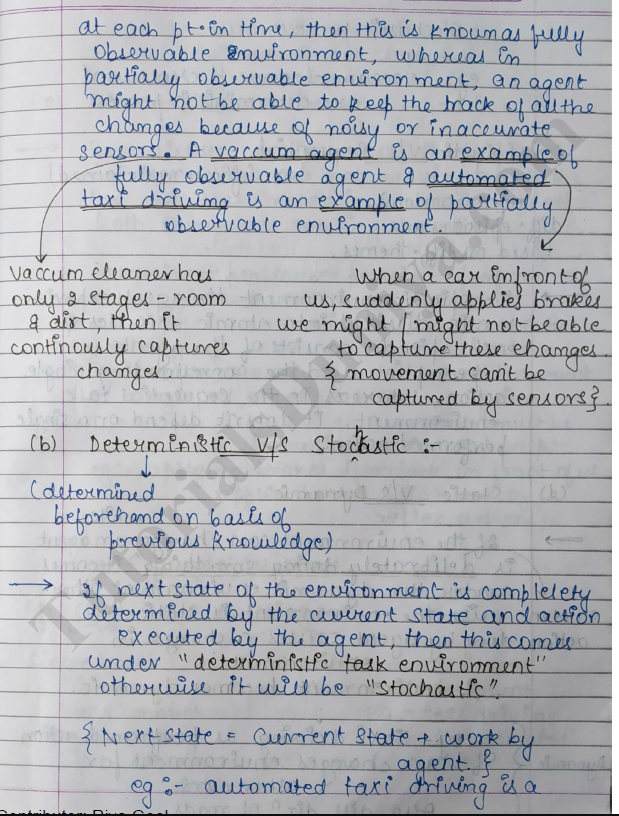 at each pt. in time, then this is known as fully
observable environment, whereas in
partially observable environment, an agent
might not be able to keep the track of all the
changes because of noisy or inaccurate
sensors. A vaccum agent is an example of
fully observable agent & automated
taxi driving is an example of partially
observable environment.
vaccum cleaner has
only 2 stages - room
& dirt, then it
continously captures
changes.
When a car infront of
us, suddenly applies brakes
we might / might not be able
to capture these changes.
{ movement can't be
captured by sensors}.
(b) Deterministic V/S Stochastic :-
(determined
beforehand on basis of
previous knowledge)
→ If next state of the environment is complelety
determined by the current state and action
executed by the agent, then this comes
under "deterministic task environment"
otherwise it will be "stochastic".
{ Next state = current state + work by
agent. }
eg :- automated taxi driving is a